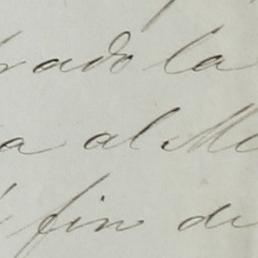 rado la
a al M
fin de